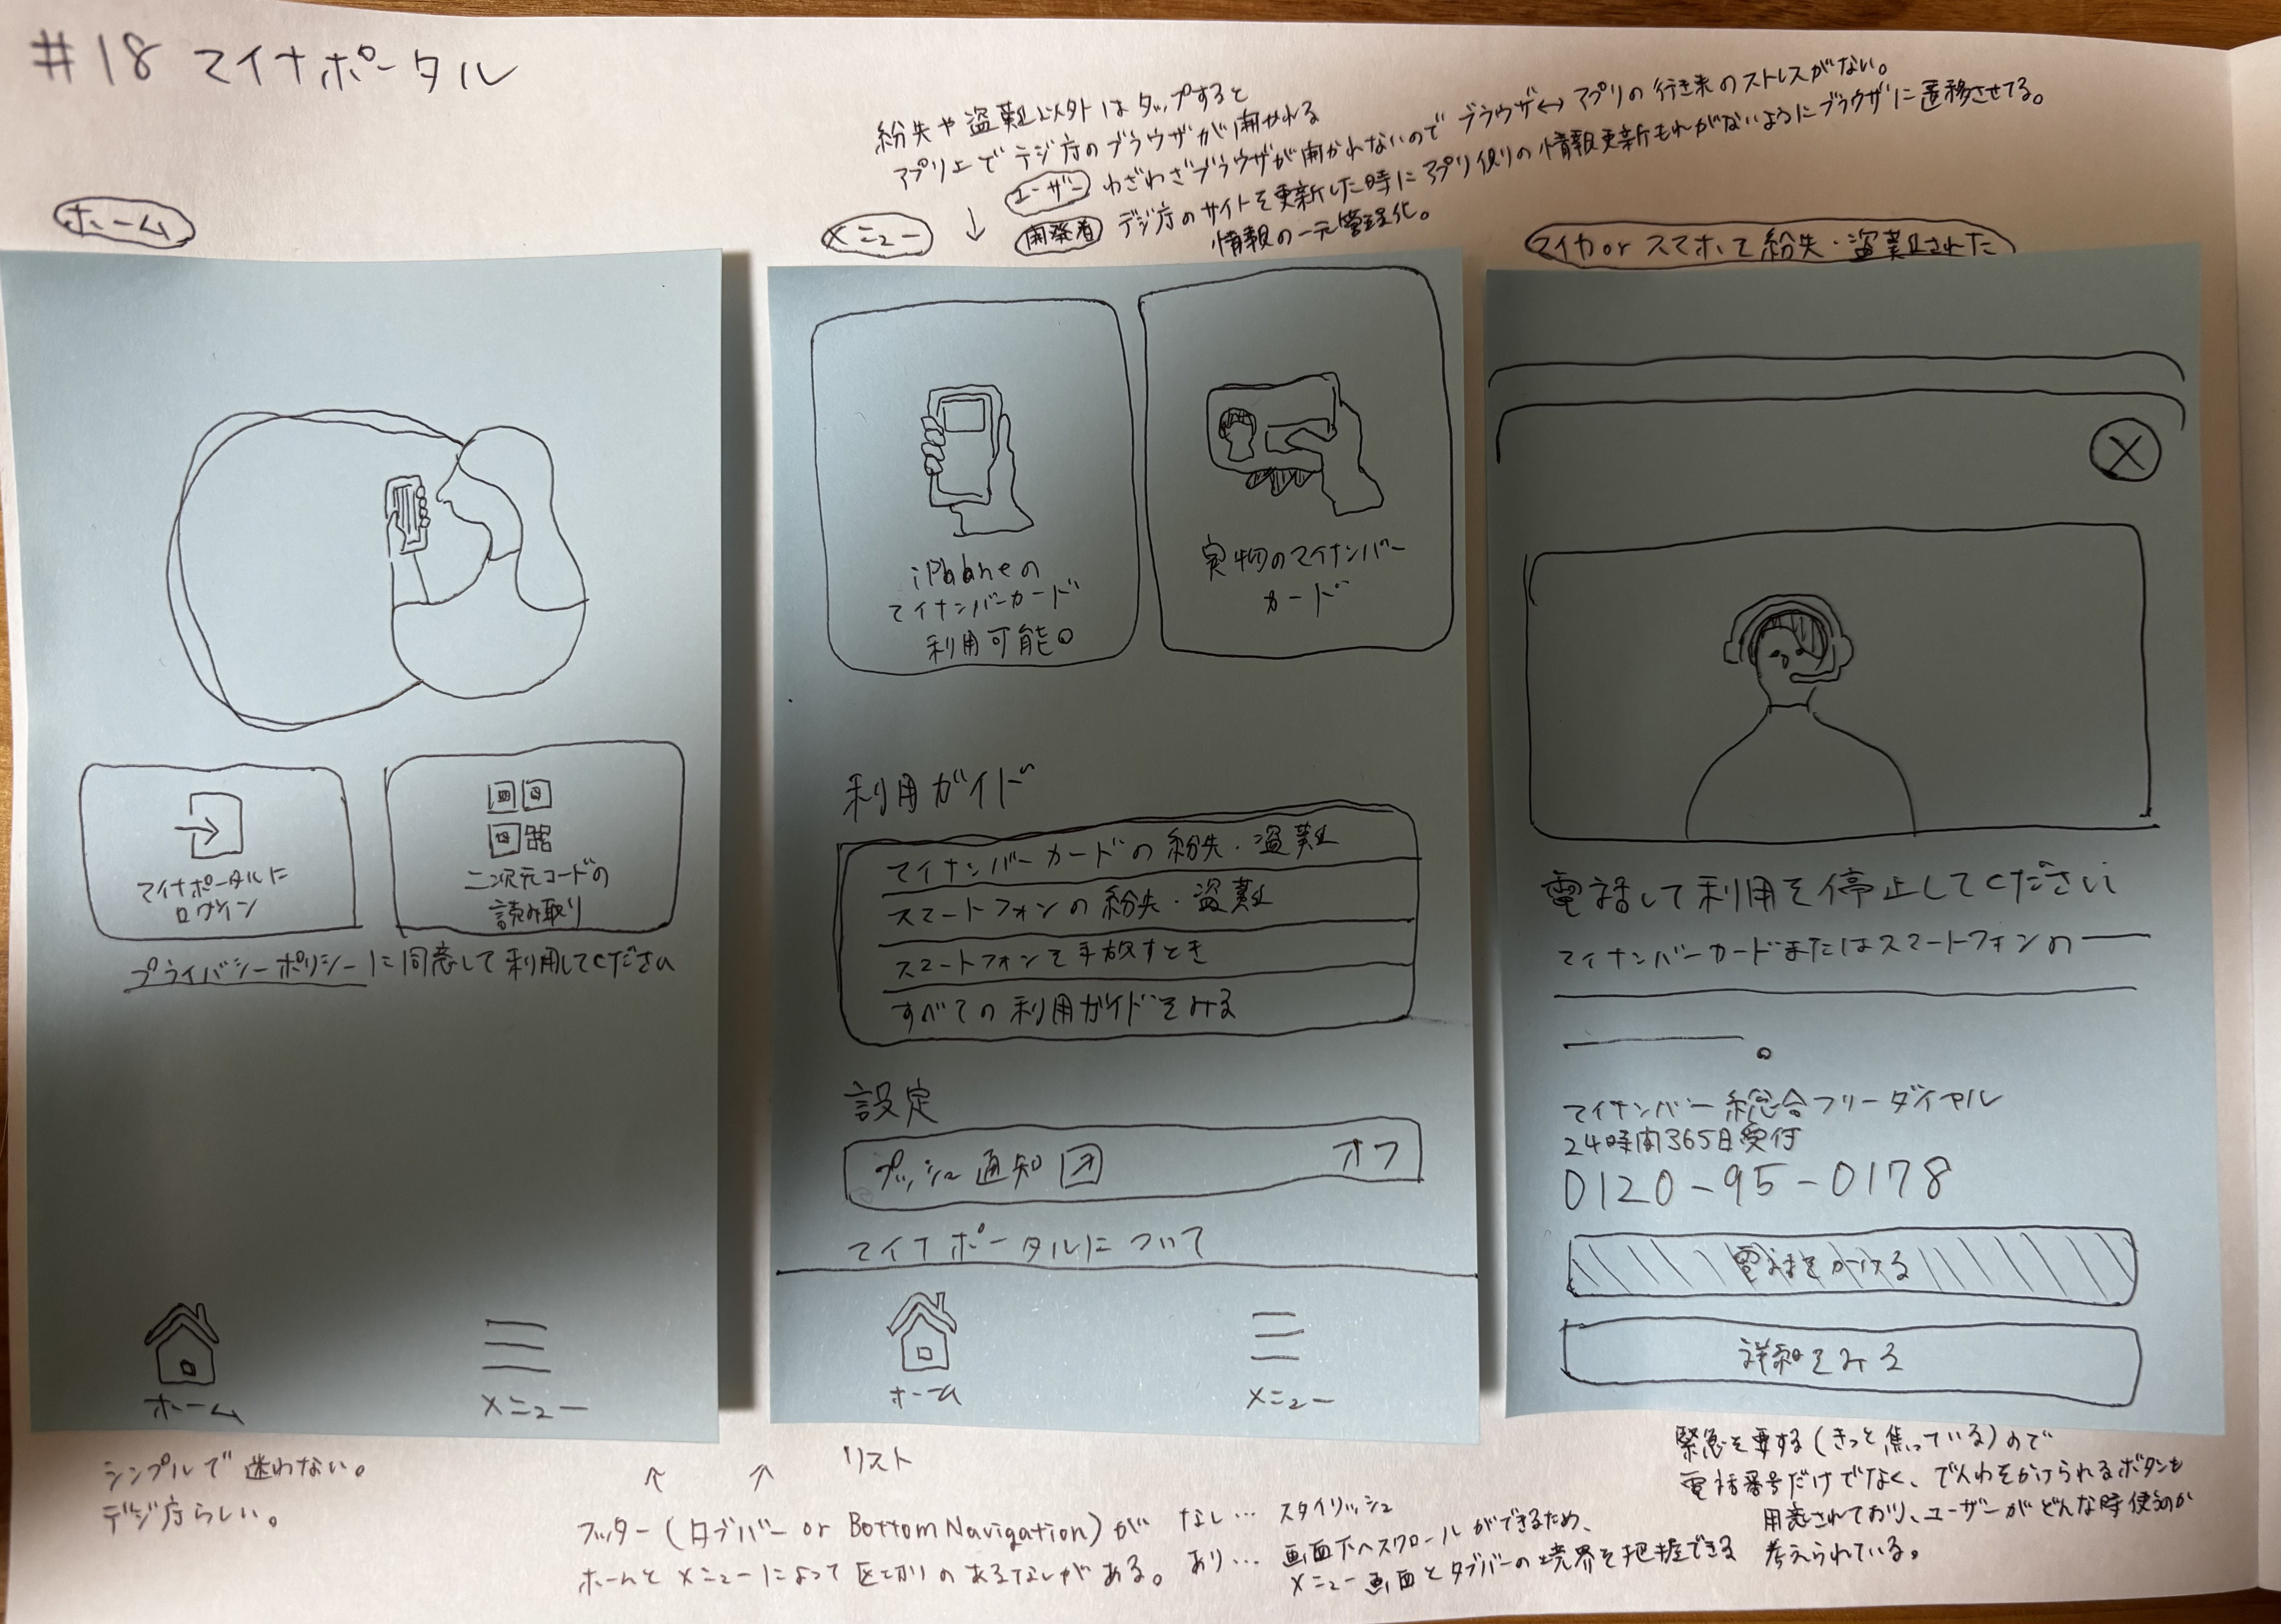 #18 マイナポータル
紛失や盗難以外はタップすると
アプリ上でデジ庁のブラウザが開かれる
ユーザー わざわざブラウザが開かれないのでブラウザ↔アプリの行き来のストレスがない。
↓ 開発者 デジ庁のサイトを更新した時にアプリ側の情報更新もれがないようにブラウザに遷移させてる。
情報の一元管理化。
ホーム
マイナポータルに
ログイン
二次元コードの
読み取り
プライバシーポリシーに同意して利用してください
ホーム
メニュー
シンプルで迷わない。
デジ庁らしい。
メニュー
iPhoneの
マイナンバーカード
利用可能
実物のマイナンバー
カード
利用ガイド
マイナンバーカードの紛失・盗難
スマートフォンの紛失・盗難
スマートフォンを手放すとき
すべての利用ガイドをみる
設定
プッシュ通知 オフ
マイナポータルについて
ホーム
メニュー
リスト
↑ ↑
フッター(タブバー or Bottom Navigation)が
ホームとメニューによって区切りのあるなしがある。
なし… スタイリッシュ
あり… 画面下へスクロールができるため、
メニュー画面とタブバーの境界を把握できる
マイカ or スマホで紛失・盗難された
X
電話して利用を停止してください
マイナンバーカードまたはスマートフォンの
マイナンバー総合フリーダイヤル
24時間365日受付
0120-95-0178
電話をかける
詳細をみる
緊急を要する(きっと焦っている)ので
電話番号だけでなく、でんわをかけられるボタンも
用意されており、ユーザーがどんな時使うのか
考えられている。